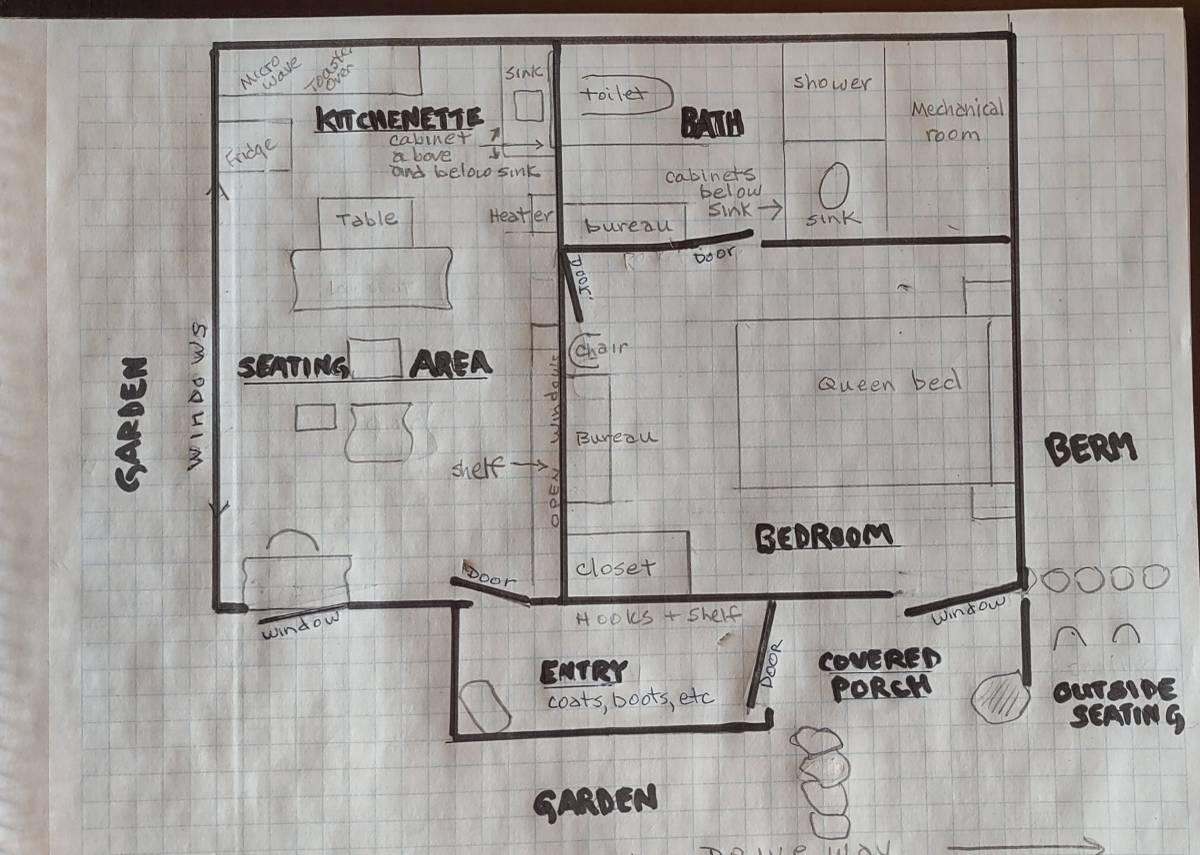 MICRO
WAVE
TOASTER
OVER
KITCHENETTE
Fridge
cabinet
above
and below sink
sink
toilet
BATH
shower
Mechanical
room
cabinets
below
sink
sink
Table
Heater
bureau
Door
DOOR
SEATING AREA
chair
Queen bed
Bureau
shelf
OPEN WINDOWS
GARDEN
WINDOWS
BERM
BEDROOM
closet
DOOR
window
HOOKS + Shelf
window
ENTRY
coats, boots, etc
DOOR
COVERED
PORCH
OUTSIDE
SEATING
GARDEN